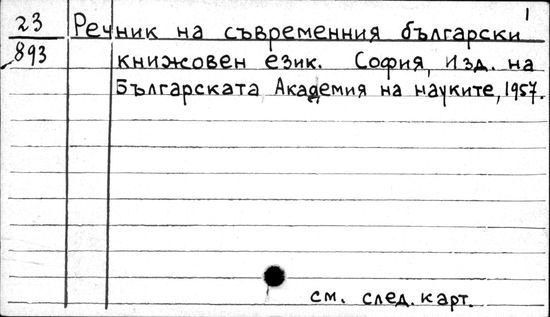 1
23 Речник на съвременния български
893 книжовен език. София, Изд. на
Българската Академия на науките, 1957.
см. след. карт.